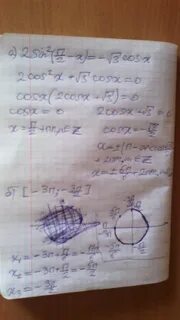 а) 2sin²(π/2 - x) = -√3 cosx
2cos²x + √3 cosx = 0
cosx(2cosx + √3) = 0
cosx = 0 2cosx + √3 = 0
x = π/2 + πn, n∈Z cosx = -√3/2
x = ±(π - arccos √3/2) +
+ 2πn, n∈Z
x = ± 5π/6 + 2πn, n∈Z
б) [-3π; -3π/2]
x₁ = -3π + π/6 =
x₂ = -3π + π/2 = -5π/2
x₃ = -3π/2